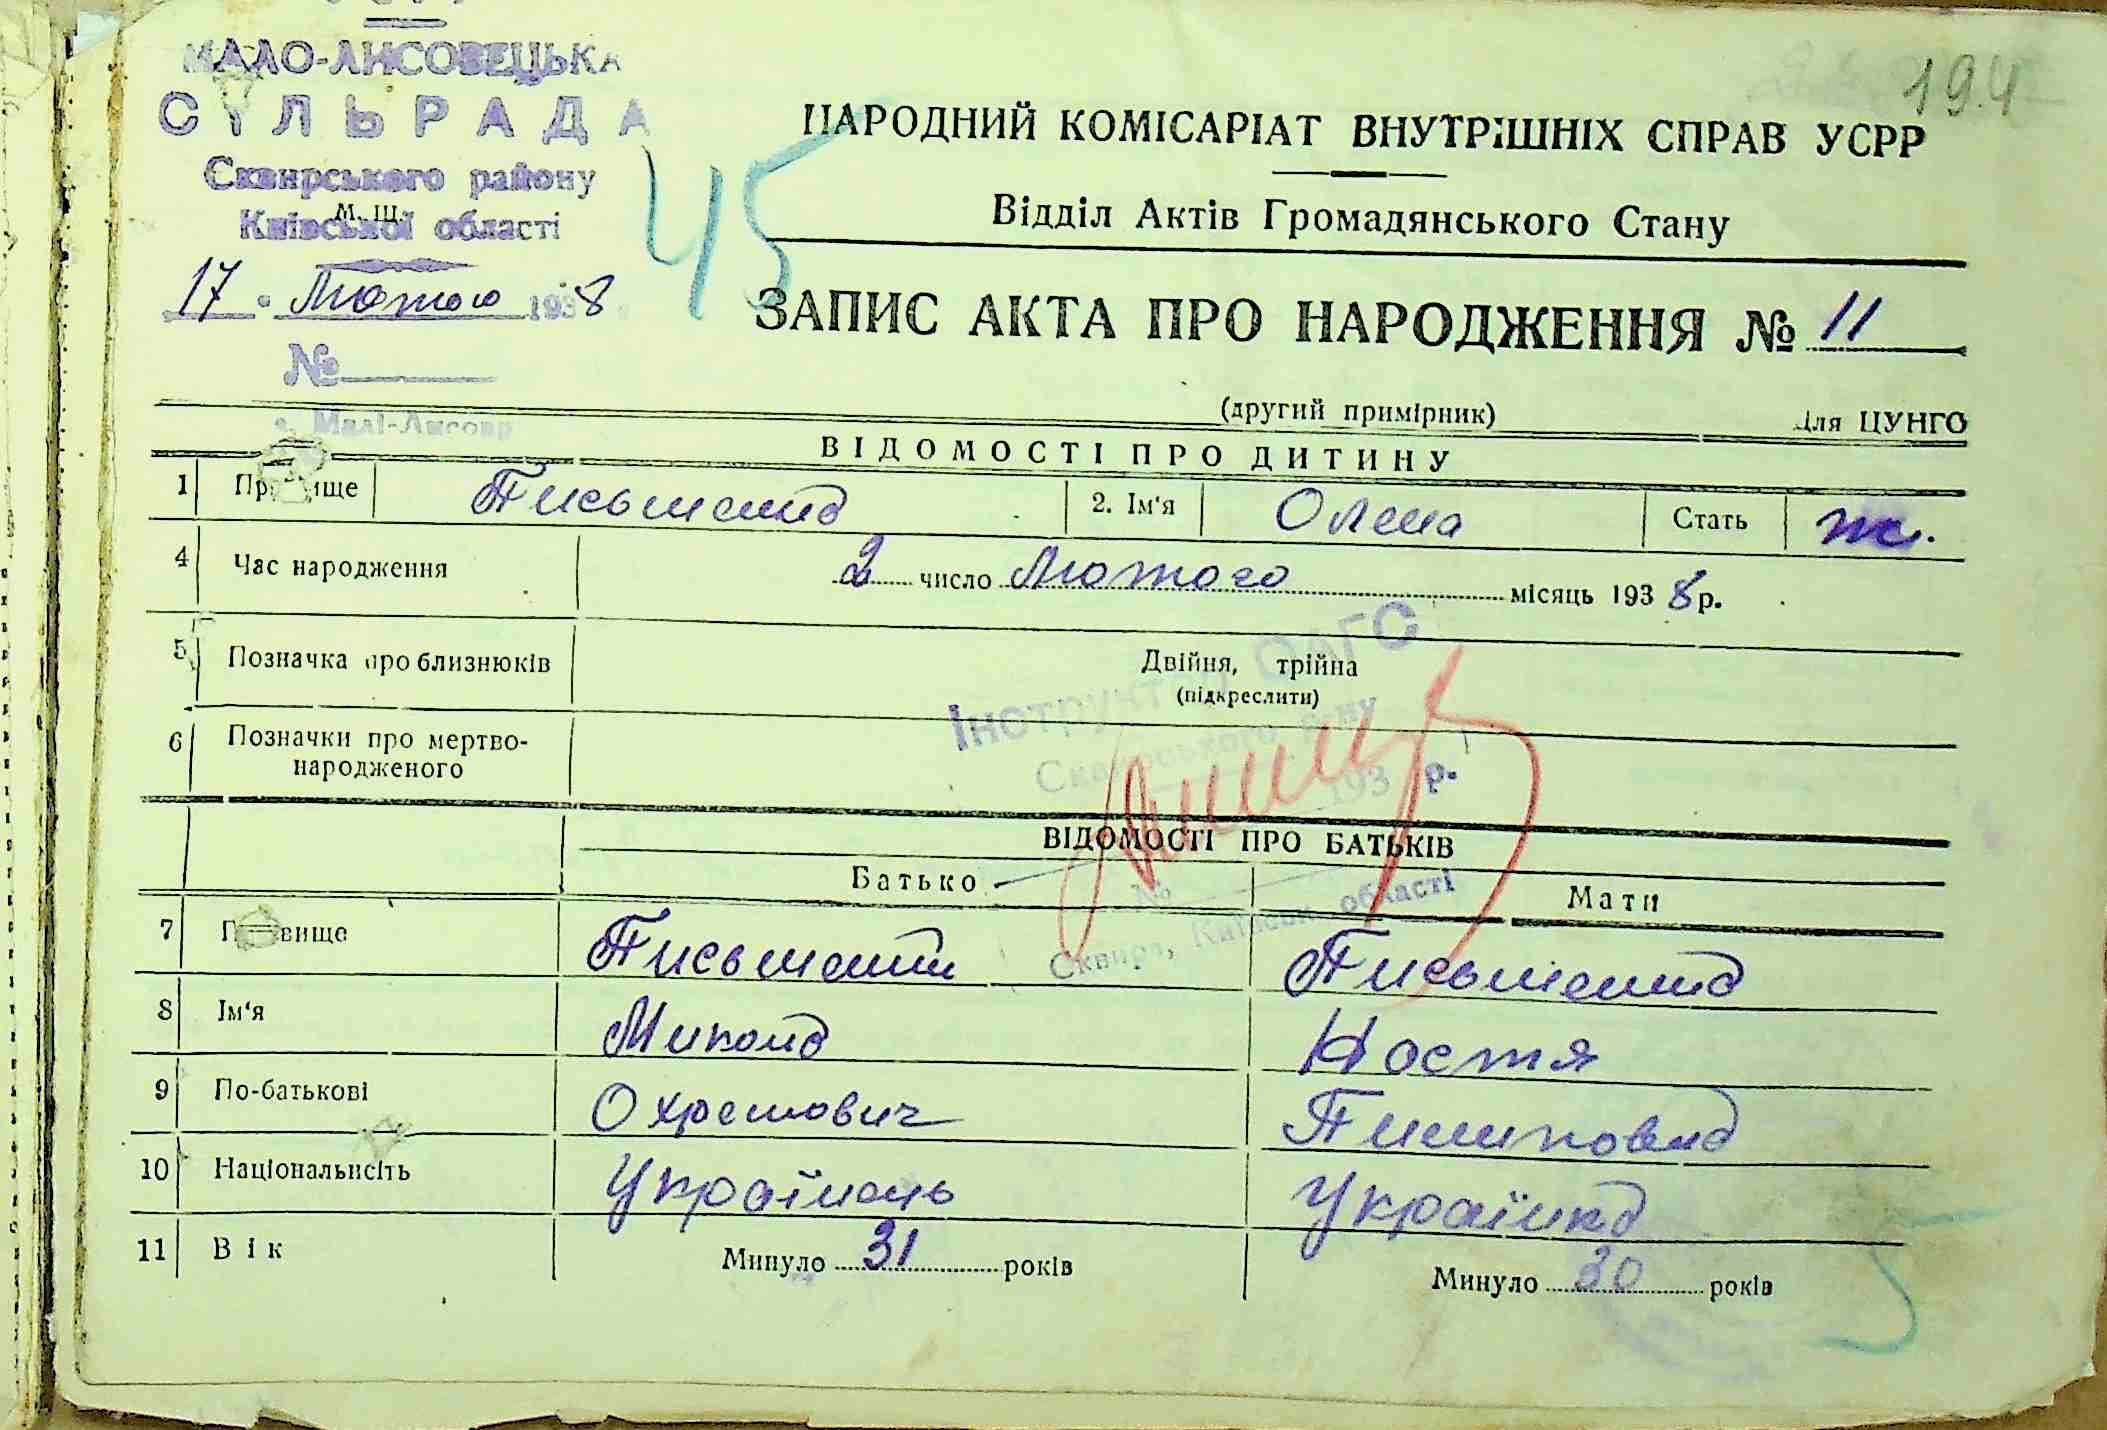 МАЛО-ЛИСОВЕЦЬКА
СІЛЬРАДА
Сквирського району
М. Ш.
Київської області
17 Лютого 1938
№
с. Малі-Лисов
45
194
НАРОДНИЙ КОМІСАРІАТ ВНУТРІШНІХ СПРАВ УСРР
Відділ Актів Громадянського Стану
ЗАПИС АКТА ПРО НАРОДЖЕННЯ № 11
(другий примірник) Для ЦУНГО
ВІДОМОСТІ ПРО ДИТИНУ
1 Прізвище Письменна 2. Ім'я Олена Стать ж.
4 Час народження 2 число Лютого місяць 1938 р.
5 Позначка про близнюків Двійня, трійна
(підкреслити)
6 Позначки про мертво-
народженого
Інструктор ОАГС
Сквирського р-ну
193 р.
№
Сквира, Київськ. області
ВІДОМОСТІ ПРО БАТЬКІВ
Батько Мати
7 Прізвище Письменни Письменна
8 Ім'я Микола Настя
9 По-батькові Охремович Пилиповна
10 Національність Українець Українка
11 Вік Минуло 31 років Минуло 30 років